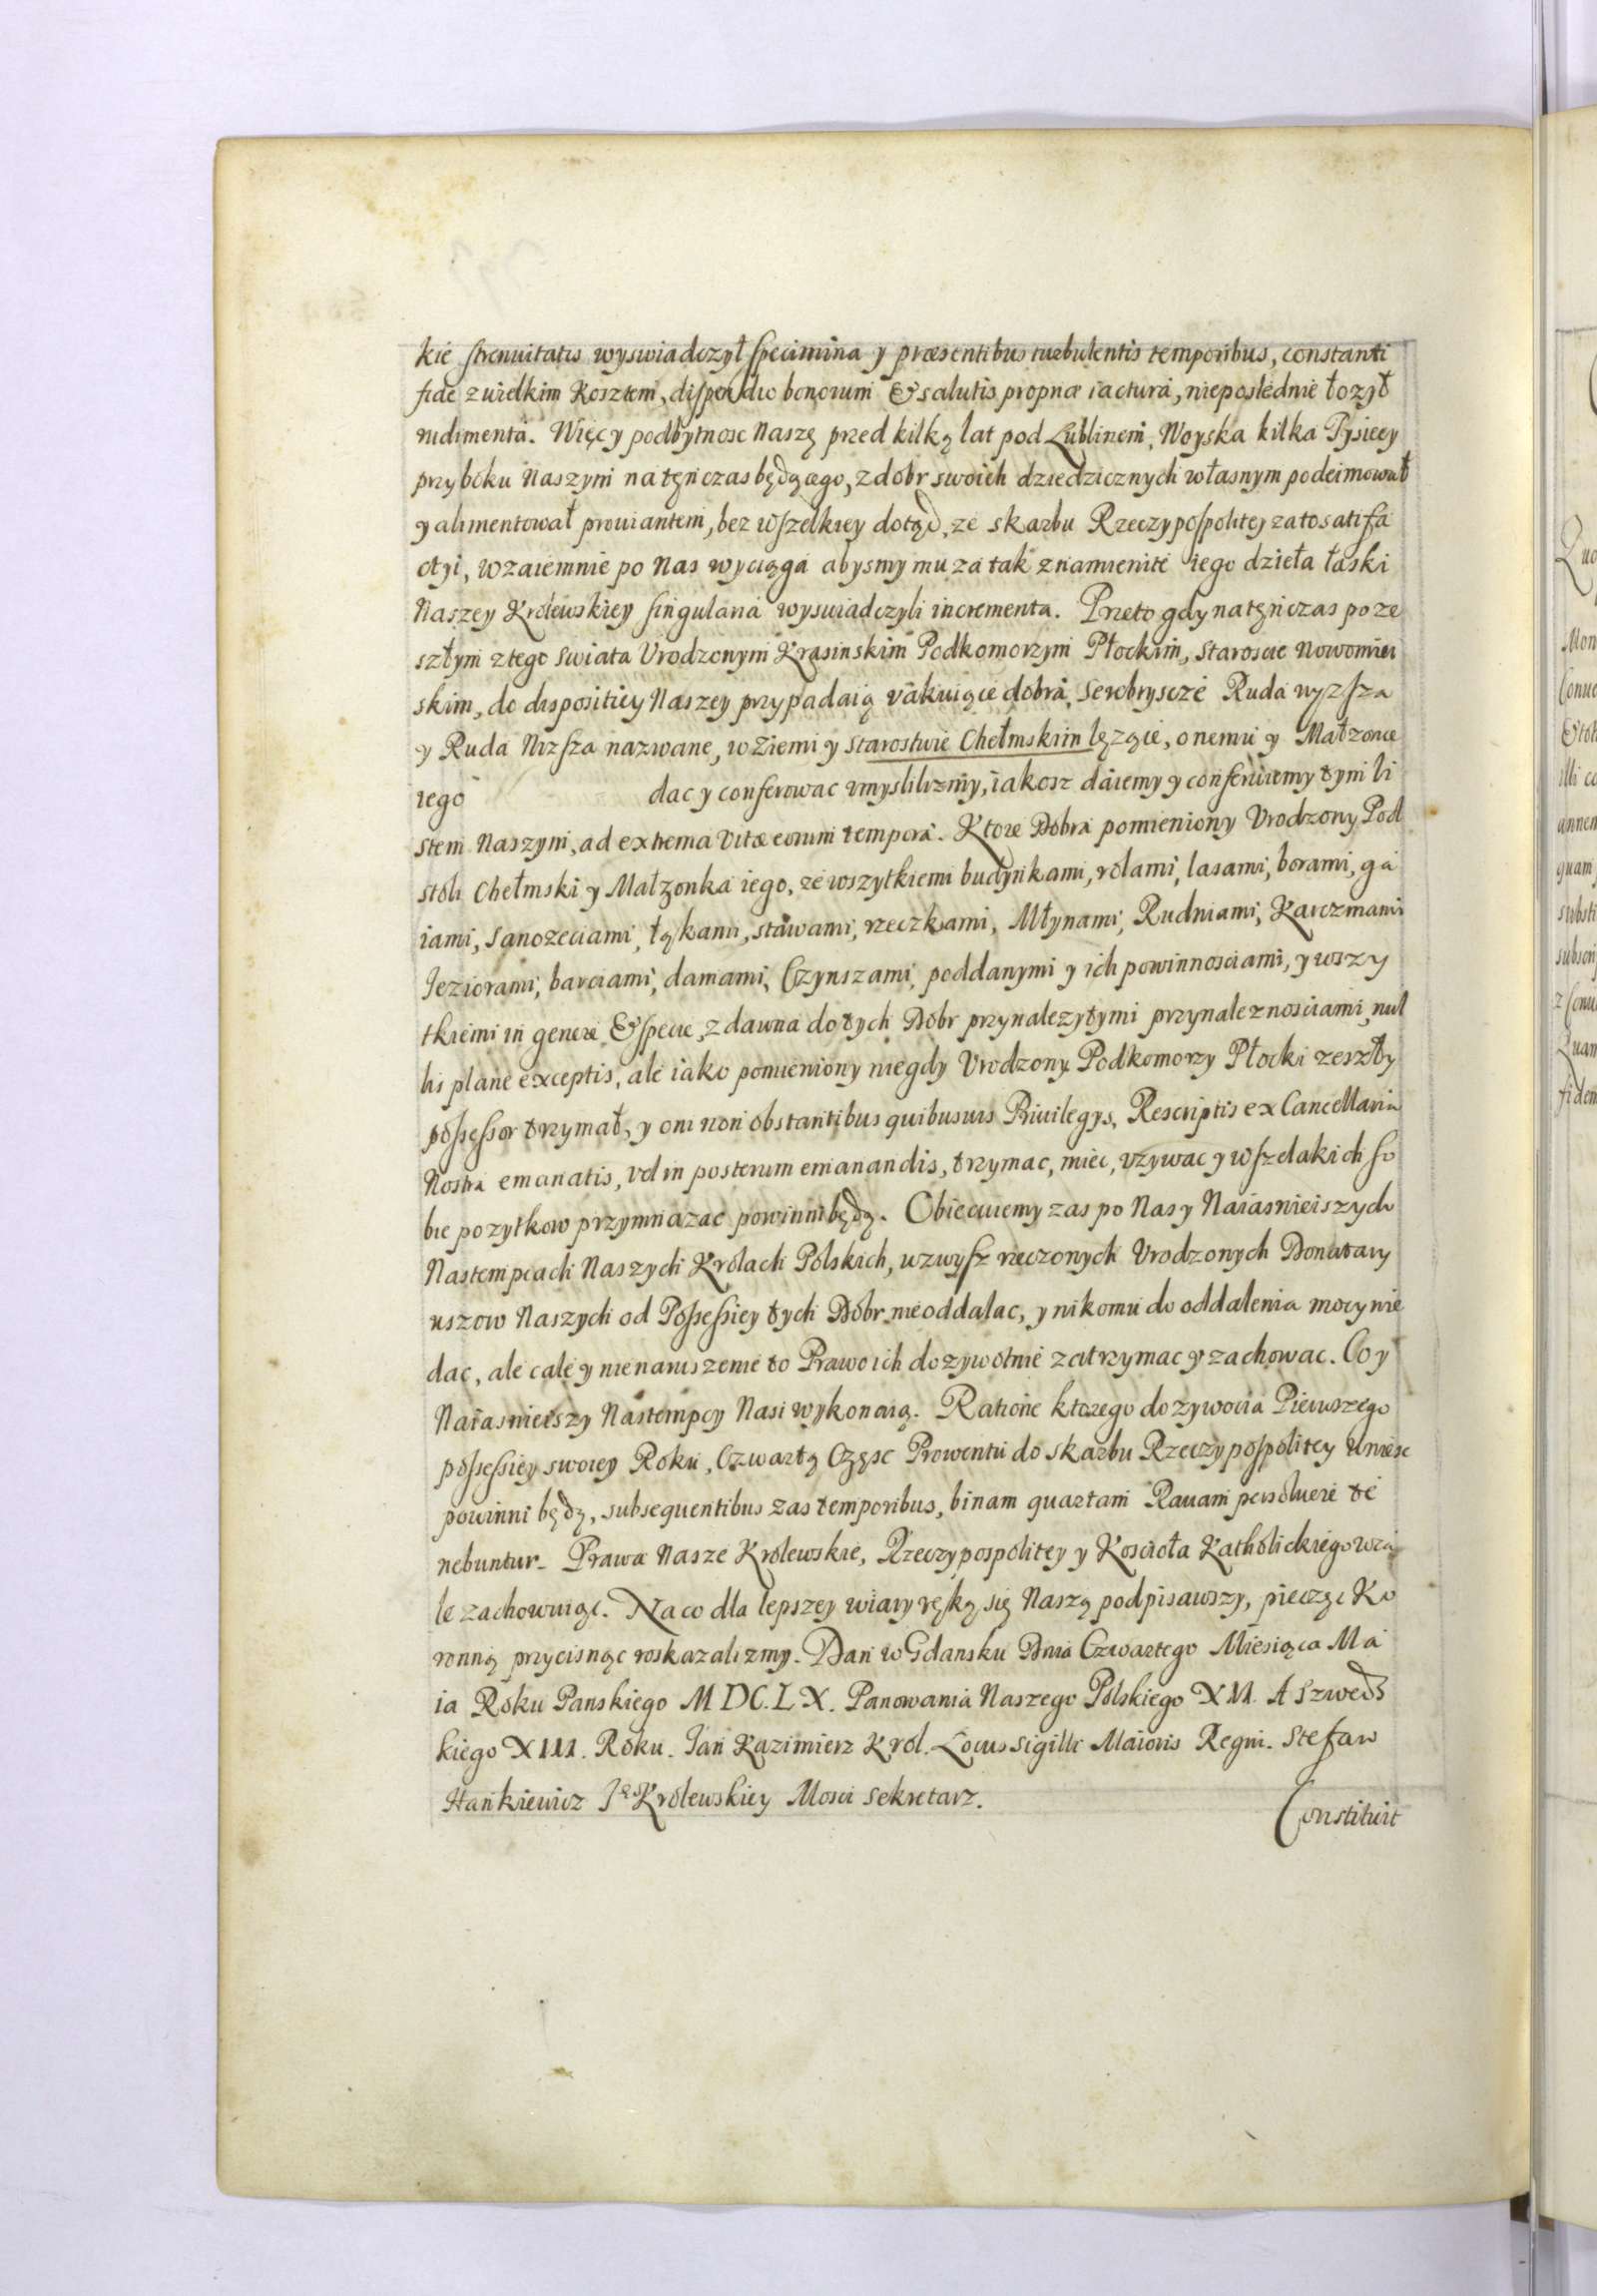 kie strenuitatis wyswiadczył specimina y præsentibus turbulentis temporibus, constanti
fide zwielkim Kosztem, dispendio bonorum & salutis propriæ iactura, nieposlednie łozył
rudimenta. Więc y podbytnosc Naszę przed kilką lat pod Lublinem, Woyska kilka Tysięcy
przy boku Naszym natęnczas będącego, z dobr swoich dziedzicznych własnym podeimował
y alimentował prouiantem, bez wszelkiey dotąd, ze skarbu Rzeczypospolitej za to satisfa
ctyi, wzaiemnie po Nas wyciąga abysmy mu za tak znamienite iego dzieła łaski
Naszey Krolewskiey singularia wyswiadczyli incrementa. Przeto gdy natęnczas po ze
szłym z tego swiata Vrodzonym Krasinskim Podkomorzym Płockim, Staroscie Nowomiei
skim, do dispositiey Naszey przypadaią vakuiące dobra, Serobryscze Ruda wyzsza
y Ruda Nizsza nazwane, w Ziemi y Starostwie Chełmskim lęzące, onemu y Małzonce
iego dac y conferowac vmyslilizmy, iakosz daiemy y conferuiemy tym li
stem Naszym, ad extrema vitæ eorum tempora. Ktore Dobra pomieniony Vrodzony Pod
stoli Chełmski y Małzonka iego, ze wszytkiemi budynkami, rolami, lasami, borami, ga
iami, sanozeciami, łąkami, stawami, rzeczkami, Młynami, Rudniami, Karczmami
Ieziorami, barciami, damami, Czynszami, poddanymi y ich powinnosciami, y wszy
tkiemi in genere & specie, zdawna do tych Dobr przynalezytymi przynaleznosciami, nul
lis plane exceptis, ale iako pomieniony niegdy Vrodzony Podkomorzy Płocki zeszły
possessor trzymał, y oni non obstantibus quibusuis Priuilegys, Rescriptis ex Cancellaria
Nostra emanatis, vel in posterum emanandis, trzymac, miec, vzywac y wszelakich so
bie pozytkow przymnazac powinni będą. Obiecuiemy zas po Nas y Naiasnieiszych
Nastempcach Naszych Krolach Polskich, wzwysz rzeczonych Vrodzonych Donatary
uszow Naszych od Possessiey tych Dobr nieoddalac, y nikomu do oddalenia mocy nie
dac, ale cale y nienaruszenie to Prawo ich dozywotnie zatrzymac y zachowac. Co y
Naiasnieiszy Nastempcy Nasi wykonaią. Ratione ktorego dozywocia Pierwszego
possessiey swoiey Roku, Czwartą Częsc Prowentu do skarbu Rzeczypospolitey Vniesc
powinni będą, subsequentibus zas temporibus, binam quartam Rauam persoluere te
nebuntur. Prawa Nasze Krolewskie, Rzeczypospolitey y Koscioła Katholickiego wca
le zachowuiąc. Na co dla lepszey wiary ręką się Naszą podpisawszy, pieczęc Ko
ronną przycisnąc roskazalizmy. Dan w Gdansku Dnia Czwartego Miesiąca Ma
ia Roku Panskiego MDC.LX. Panowania Naszego Polskiego XII. A Szweds
kiego XIII. Roku. Jan Kazimierz Krol. Locus Sigilli Maioris Regni. Stefan
Hankiewicz Je° Krolewskiey Mosci Sekretarz.
Constituit